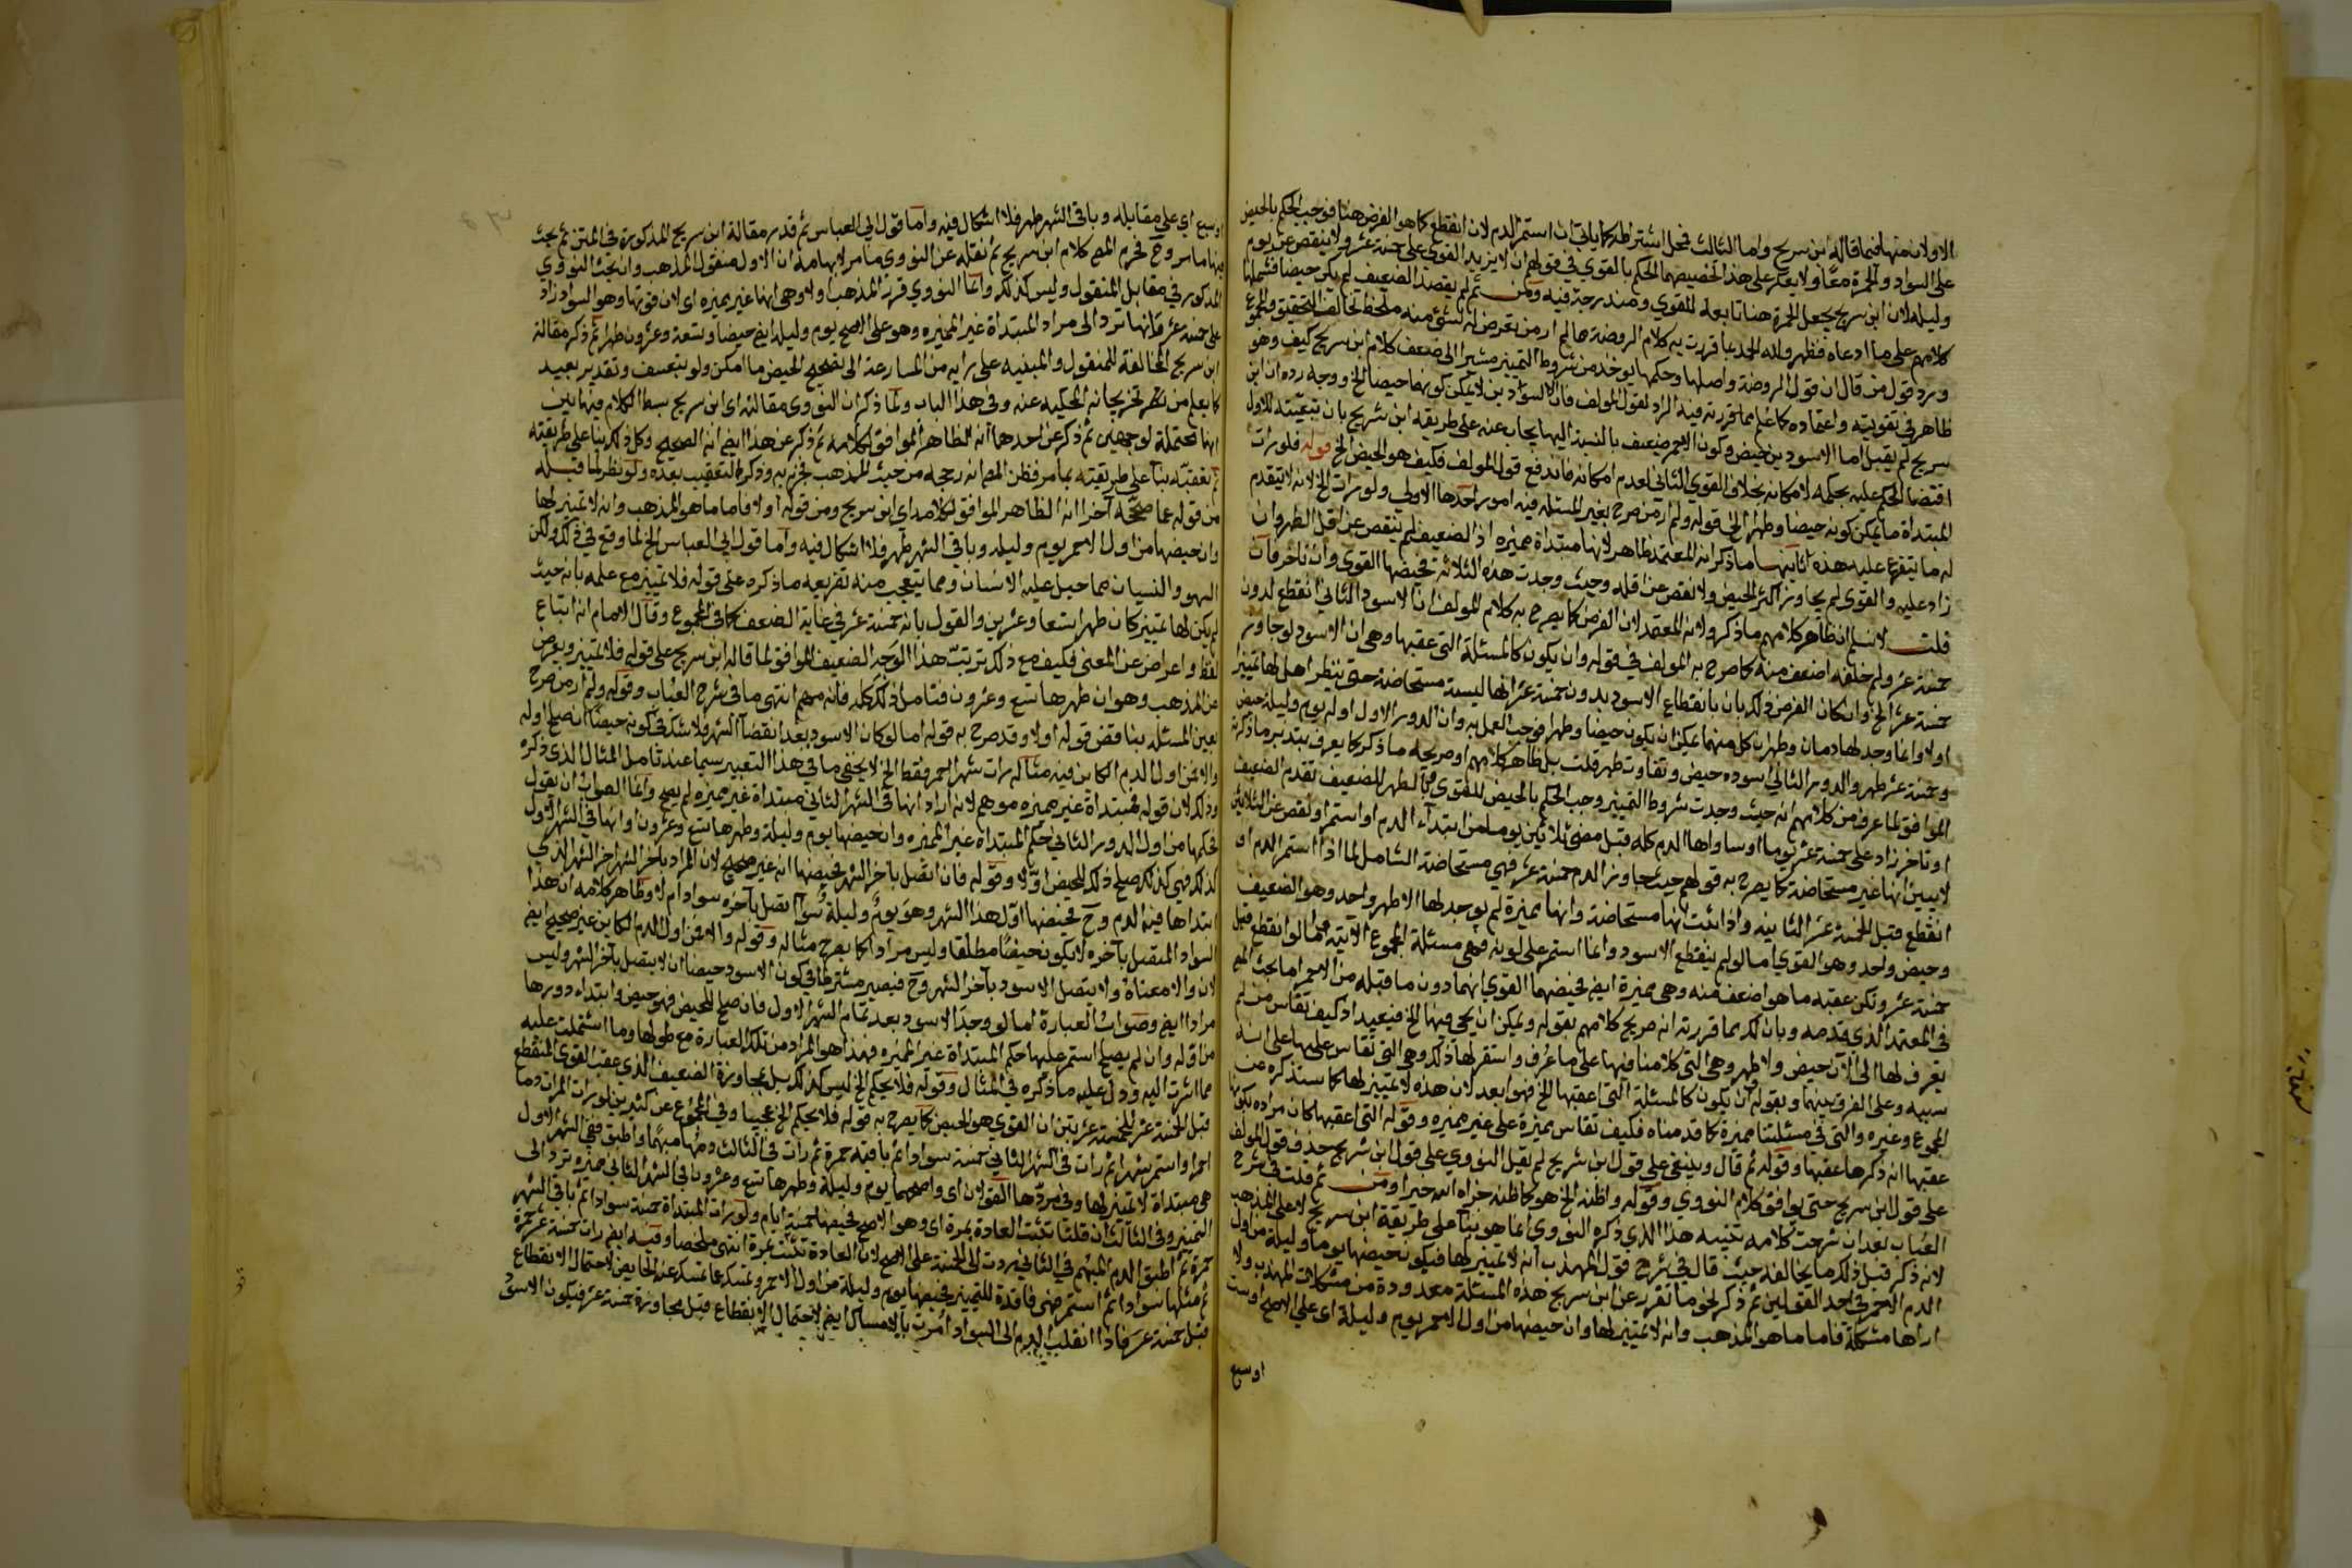 الاولان منها فيما قاله ابن سريج واما الثالث فمحل اشتراطه كما ياتي ان استمر الدم لان انقطع كما هو الفرض هنا فوجب الحكم بالحيض
على السواد والحمرة معا ولا يعكر على هذا تخصيصها الحكم بالقوي في قولهم ان لا يزيد القوي على خمسة عشر ولا ينقص عن يوم
وليله لان ابن سريج يجعل الحمرة هنا تابعة للقوي ومندرجة فيه ومن ثم لم يقصد الضعيف لم يكن حيضا فشملها
كلامهم على ما ادعاه فظهر ولله الحمد بما قررت به كلام الروضة ما لم ار من تعرض له بشئ منه ملحظ تخالف التحقيق والمجموع
ويرد قول من قال ان قول الروضة واصلها وحكمها يوخذ من شروط التمييز مشيرا الى ضعف كلام ابن سريج كيف وهو
ظاهر في تقويته واعتماده كما علم مما قررته فيه المراد لقول المولف فان السوادين لا يمكن كونهما حيضا الخ ووجه رده ان ابن
سريج لم يقبل اما الاسودين حيض وكون الاحمر ضعيف بالنسبة اليها يجاب عنه على طريقة ابن سريج بان تبعيته للاول
اقتضا الحكم عليه بحكمه لامكانه بخلاف القوي الثاني لعدم امكانه فاندفع قول المولف فكيف هو الحيض الخ قوله فلو رات
المبتداة ما يمكن كونه حيضا وطهرا الى قوله ولم ار من صرح بغير المسئلة فيه امور احدها الاولى ولو رات الخ لانه لا يتقدم
له ما يتفرع عليه هذه ثانيها ما ذكر انه المعتمد ظاهر لانها مبتداة مميزة اذ الضعيف لم ينقص عن اقل الطهر وان
زاد عليه والقوي لم يجاوز اكثر الحيض ولا نقص عن اقله وحيث وجدت هذه الثلاثة فحيضها القوي وان تاخر فان
قلت لا نسلم ان ظاهر كلامهم ما ذكر ولا انه المعتمد لان الفرض كما يصرح به كلام المولف ان الاسود الثاني انقطع لدون
خمسة عشر ولم يخلفه اضعف منه كما صرح به المولف في قوله وان يكون كالمسئلة التي عقبها وهي ان الاسود لو جاوز
خمسة عشر الخ وان كان الفرض ذلك بان بانقطاع الاسود بدون خمسة عشر انها ليست مستحاضة حتى ينظر اهل لها تمييز
اولا وانما وجد لها دمان وطهران كل منهما يمكن ان يكون حيضا وطهرا فوجب العمل به وان الدور الاول اوله يوم وليلة حيض
وخمسة عشر طهر والدور الثاني اسوده حيض وتفاوت طهر قلت بل ظاهر كلامهم او صريحه ما ذكر كما يعرف بتدبر ما ذكرته
الموافق لما عرف من كلامهم انه حيث وجدت شروط التمييز وجب الحكم بالحيض للقوي وبالطهر للضعيف تقدم الضعيف
او تاخر زاد على خمسة عشر يوما او ساواها الدم كله قبل مضي ثلاثين يوما من ابتداء الدم او استمر او نقص عن الثلاثين
لا يبين انها غير مستحاضة كما يصرح به قولهم حيث جاوز الدم خمسة عشر فهي مستحاضة الشامل لما اذا استمر الدم او
انقطع قبل الخمسة عشر الثانية واذا ثبت انها مستحاضة وانها مميزة لم يوجد لها الا طهر واحد وهو الضعيف
وحيض واحد وهو القوي اما لو لم ينقطع الاسود وانما استمر على لونه فهي مسئلة المجموع الآتية فيما لو انقطع قبل
خمسة عشر ولكن عقبه ما هو اضعف منه وهي مميزة ايض فحيضها القوي انها دون ما قبله من الاحمر اما بحث المص
في المعتمد الذي قدمه وبان لك بما قررته انه صريح كلامهم بقوله ويمكن ان يجي فيها الخ فبعيد اذ كيف تقاس من لم
يعرف لها الى الآن حيض ولا طهر وهي التي كلامنا فيها على ما عرف واستقر لها ذلك وهي التي تقاس عليها على انه
سيبه وعلى الفرق بينهما وبقوله ان يكون كالمسئلة التي اعقبها الخ فهو ابعد لان هذه لا تمييز لها كما ستذكره من
المجموع وغيره والتي في مسئلتنا مميزة كما قدمناه فكيف تقاس مميزة على غير مميزة وقوله التي اعقبها كان مراده بكونها
عقبها انه ذكرها عقبها وقوله ثم قال وينبغي على قول ابن سريج لم يقل النووي على قول ابن سريج حذف قول المولف
على قول ابن سريج حتى يوافق كلام النووي وقوله واظنه الخ هو كما ظنه جزاه الله خيرا ومن ثم قلت في شرح
العباب بعد ان شرحت كلامه تنبيه هذا الذي ذكره النووي انما هو بناء على طريقة ابن سريج لا على المذهب
لانه ذكر قبل ذلك ما يخالفه حيث قال في شرح قول المهذب انه لا تمييز لها فيكون حيضها يوما وليلة من اول
الدم الاحمر في احد القولين ثم ذكر نحو ما تقرر عن ابن سريج هذه المسئلة معدودة من مشكلات المهذب ولا
اراها مشكلة فاما ما هو المذهب وانه لا تمييز لها وان حيضها من اول الاحمر يوم وليلة اي على الاصح او ست
او سبع
او سبع اي على مقابله وباقي الشهر طهر فلا اشكال فيه واما قول ابي العباس ثم قدر مقالة ابن سريج المذكورة في المتن ثم بحث
فيها ما مر وح فجزم المص كلام ابن سريج ثم نقله عن النووي ما مر لايهامه ان الاول منقول المذهب وان بحث النووي
المذكور في مقابل المنقول وليس كذلك وانما النووي قرر المذهب اولا وهي انها غير مميزة اي لان قوتها وهو السواد زاد
على خمسة عشر فانها ترد الى مراد المبتداة غير المميزه وهو على الاصح يوم وليلة ايض حيضا وتسعة وعشرون طهرا ثم ذكر مقالة
ابن سريج المخالفة للمنقول والمبنيه على رايه من المسارعة الى تصحيح الحيض ما امكن ولو بتعسف وتقدير بعيد
كما يعلم من نظر تخريجاته المحكيه عنه وفي هذا الباب ولما ذكر ان النووي مقالته اي ابن سريج بسط الكلام فيها بين
انها محتملة لوجهين ثم ذكر عن احدها انه الظاهر الموافق لكلامه ثم ذكر عن هذا ايض انه الصحيح وكل ذلك بنا على طريقته
ثم تعقبه بناء على طريقته بما مر فظن المص انه رجحه من حيث المذهب فجزم به وذكر التعقيب بعده ولو نظر لما قبله
من قوله عما صححه آخرا انه الظاهر الموافق لكلامه اي ابن سريج ومن قوله اولا فاما ما هو المذهب وانه لا تمييز لها
وان حيضها من اول الاحمر يوم وليله وباقي الشهر طهر فلا اشكال فيه واما قول ابي العباس الخ لما وقع في ذلك ولكن
السهو والنسيان مما جبل عليه الانسان ومما يتعجب منه تفريعه ما ذكره على قوله فلا تمييز مع علمه بانه حيث
لم يكن لها تمييز كان طهرا تسعا وعشرين والقول بانه خمسة عشر في غاية الضعف كما في المجموع وقال الامام انه اتباع
لفظ واعراض عن المعنى فكيف مع ذلك ترتب هذا الوجه الضعيف الموافق لما قاله ابن سريج على قوله فلا تمييز ويعرض
عن المذهب وهو ان طهرها تسع وعشرون فتامل ذلك كله فانه مهم انتهى ما في شرح العباب وقوله ولم ار من صرح
بعين المسئلة يناقض قوله اولا وقد صرح به قوله اما لو كان الاسود بعد انقضا الشهر فلا شك في كونه حيضا ان صلح اوله
والا فمن اول الدم الكاين فيه مثاله رات شهرا احمر فقط الخ لا يخفى ما في هذا التعبير سيما عند تامل المثال الذي ذكره
وذلك لان قوله فمبتداة غير مميزه موهم لانه ان اراد انها في الشهر الثاني مبتداة غير مميزه لم يصح وانما الصواب ان يقول
فحكمها من اول الدور الثاني حكم المبتداة غير المميزه وان حيضها يوم وليلة وطهرها تسع وعشرون او انها في الشهر الاول
كذلك فهي كذلك صلح ذلك للحيض او لا وقوله فان اتصل بآخر الشهر فحيضها انه غير صحيح لان المراد بآخر الشهر اخر الشهر الذي
ابتداها فيه الدم وح فحيضها اول هذا الشهر وهو يوم وليلة سوا اتصل بآخره سواد ام لا وظاهر كلامه ان هذا
السواد المتصل بآخره لا يكون حيضا مطلقا وليس مرادا كما يصرح مثاله وقوله والا فمن اول الدم الكاين غير صحيح ايض
لان والا معناه ولا يتصل الاسود بآخر الشهر وح فيصير مشترطا في كون الاسود حيضا ان لا يتصل بآخر الشهر وليس
مرادا ايض وصواب العبارة اما لو وجد الاسود بعد تمام الشهر الاول فان صلح للحيض فهو حيض وابتداء دورها
من اوله وان لم يصلح استمر عليها حكم المبتداة غير المميزه فهذا هو المراد من تلك العبارة مع طولها وما اشتملت عليه
مما اشرت اليه ودل عليه ما ذكره في المثال وقوله فلا يحكم الخ ليس كذلك بل بمجاوزة الضعيف الذي عقب القوي المنقطع
قبل الخمسة عشر للخمسة عشر بتبين ان القوي هو الحيض كما يصرح به قوله فلا يحكم الخ عجيبا وفي المجموع عن كثيرين لو رات المراة دما
احمرا واستمر شهرا ثم رات في الشهر الثاني خمسة سوادا ثم باقيه حمرة ثم رات في الثالث دما مبهما واطبق ففي الشهر الاول
هي مبتداة لا تمييز لها وفي مردها القولان اي واصحهما يوم وليلة وطهرها تسع وعشرون وفي الشهر الثاني مميزه وترد الى
التمييز وفي الثالث ان قلنا تثبت العادة بمرة اي وهو الاصح فحيضها خمسة ايام ولو رات المبتداة خمسة سوادا ثم باقي الشهر
حمرة ثم اطبق الدم المبهم في الثاني ردت الى الخمسة على الاصح لان العادة تثبت بمرة انتهى ملخصا وفيه ايض رات خمسة عشر حمرة
ثم مثلها سوادا ثم استمر فهي فاقدة للتمييز فحيضها يوم وليلة من اول الاحمر وتمسك عما تمسك عنه الحايض لاحتمال الانقطاع
قبل خمسة عشر فاذا انقلب الدم الى السواد امرت بالامساك ايض لاحتمال الانقطاع قبل مجاوزة خمسة عشر فيكون الاسود